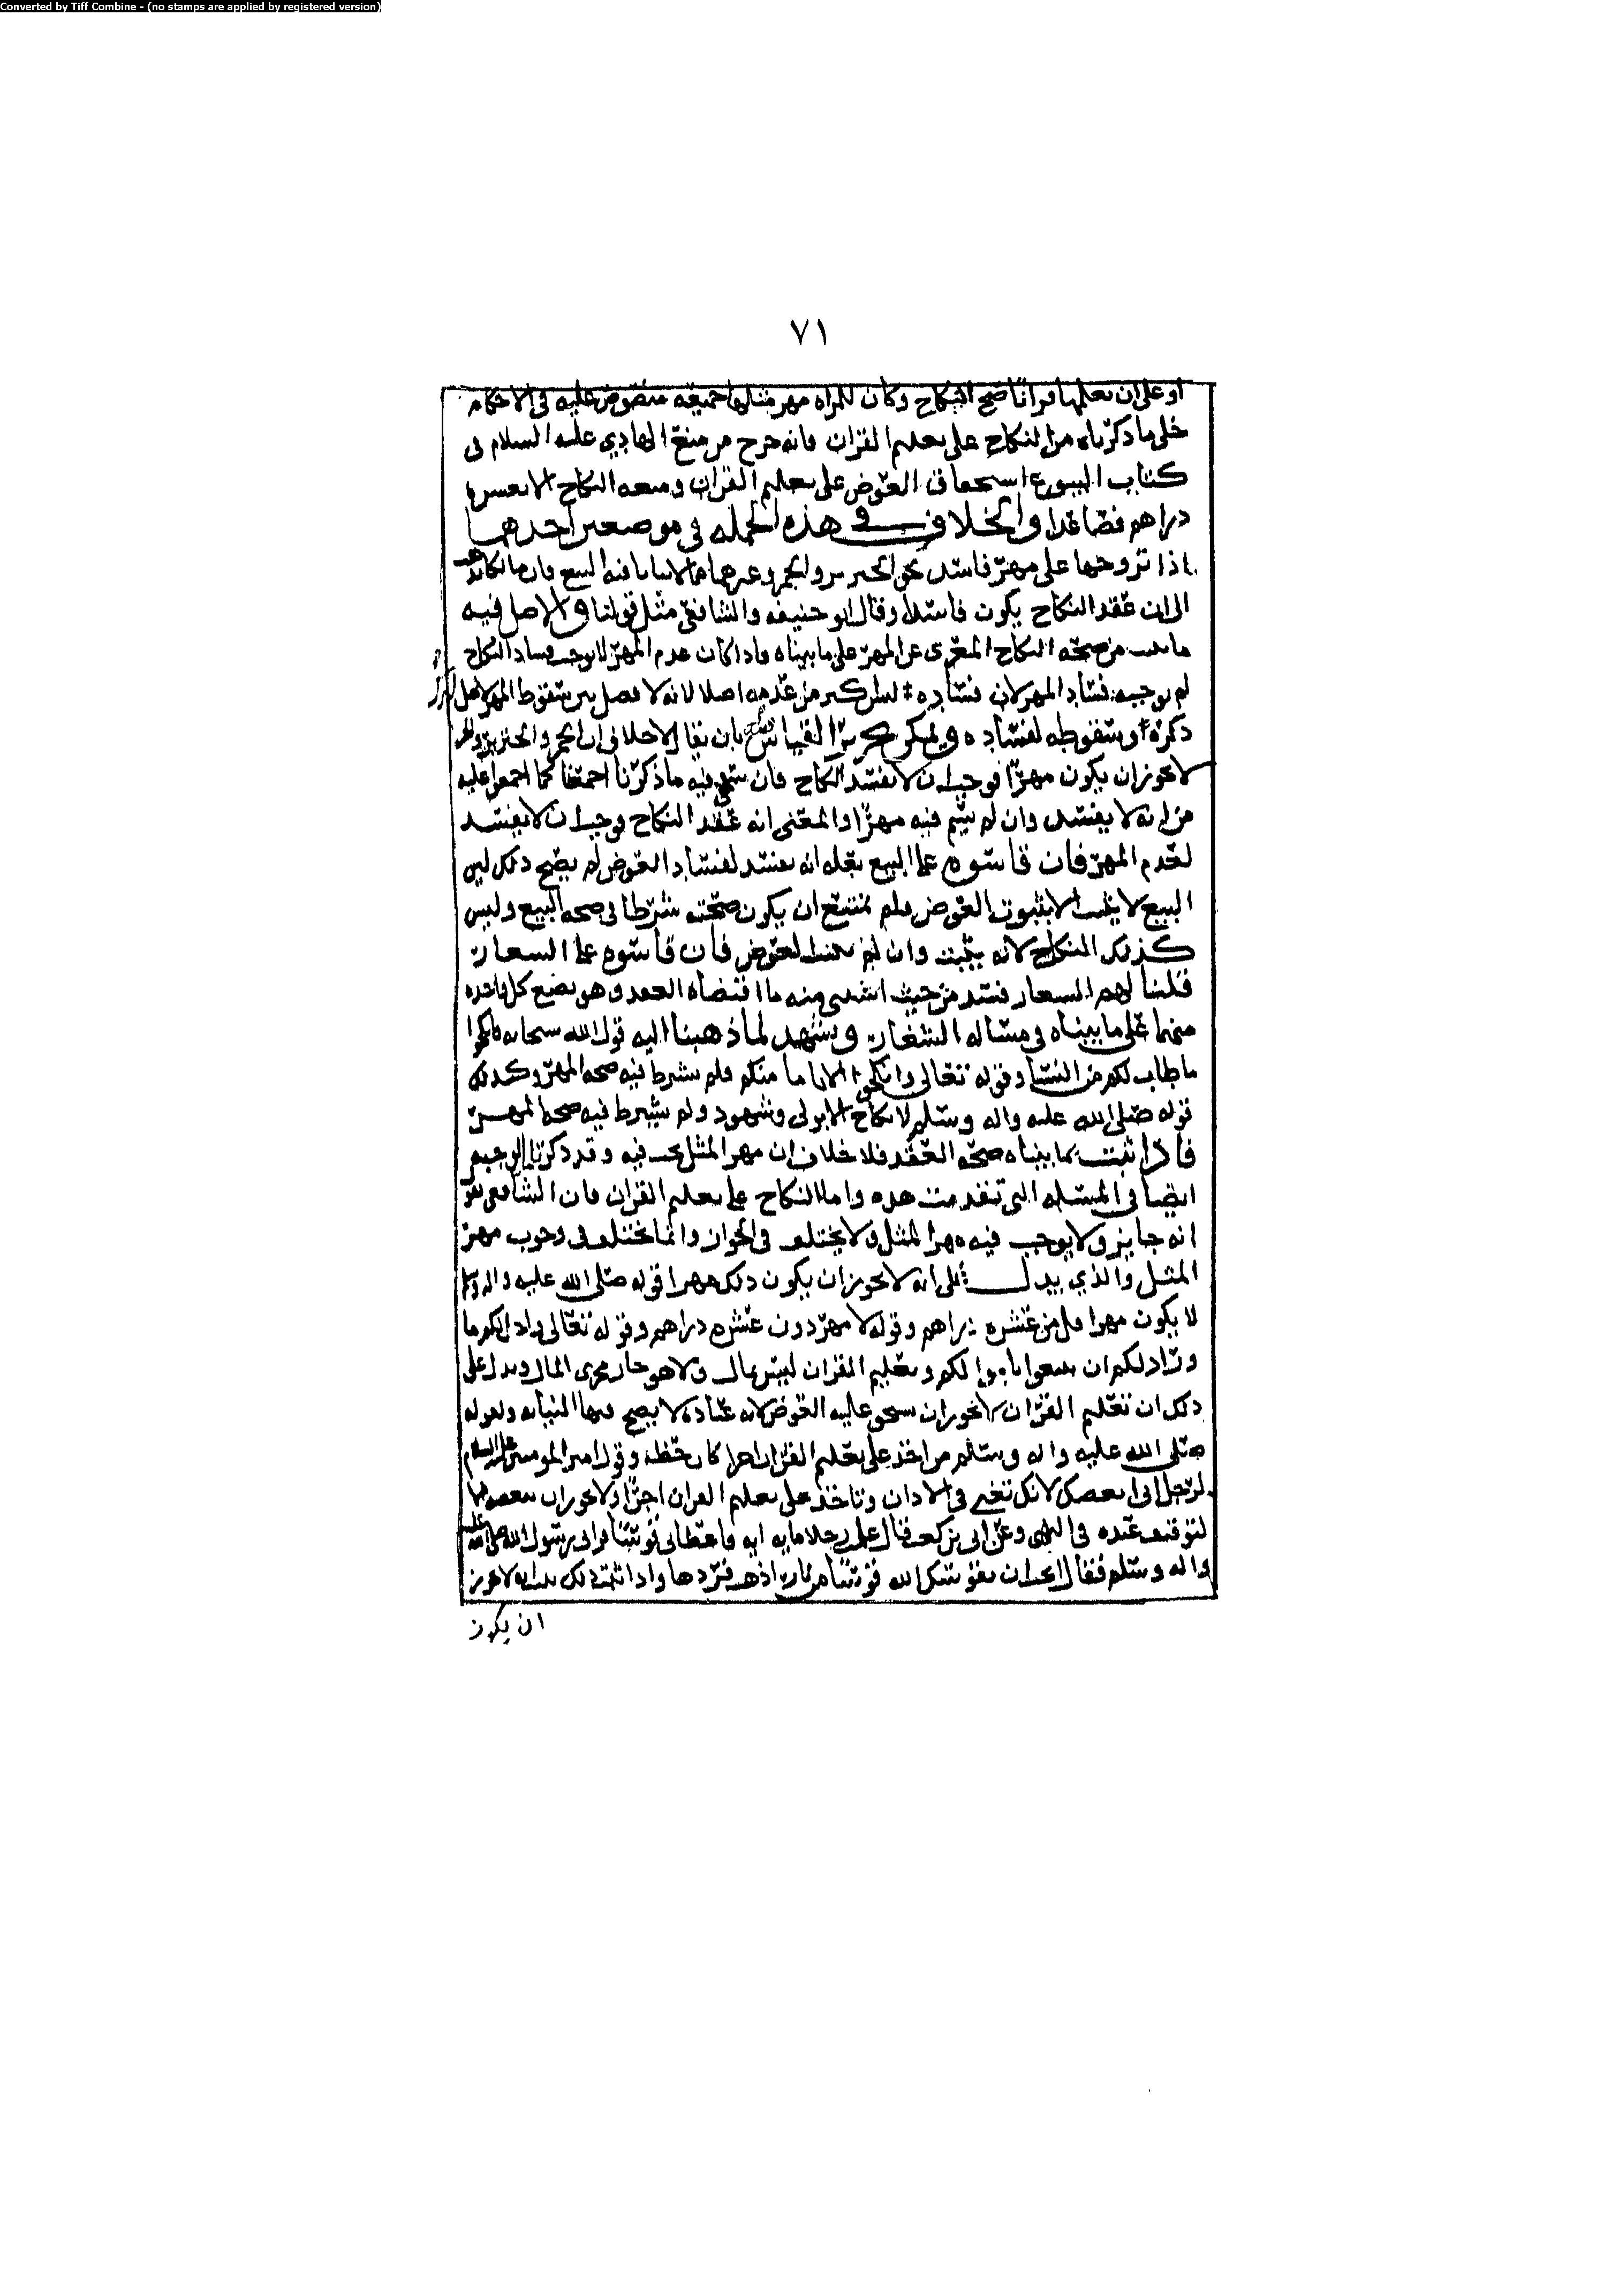 Converted by Tiff Combine - (no stamps are applied by registered version)
٧١
او على ان يعلمها قرانا صح النكاح وكان للمراه مهر مثلها جميعه منصوص عليه في الاحكام
خلى ما ذكرناه من النكاح على تعليم القران فانه خرج من منع الهادي عليه السلام في
كتاب البيوع استحقاق العوض على تعليم القران ومنعه النكاح الا بعشره
دراهم فصاعدا والخلاف في هذه الجمله في موضعين احدهما
اذا تزوجها على مهر فاسد نحو الخنزير والخمر وغيرهما فان مالكا
الى ان عقد النكاح يكون فاسدا وقال ابو حنيفه والشافعي مثل قولنا والاصل فيه
ما ثبت من صحه النكاح المعرى عن المهر على ما بيناه فاذا كان عدم المهر لا يوجب فساد النكاح
لم يوجبه فساد المهر لان فساده ليس باكبر من عدمه اصلا لانه لا فصل بين سقوط المهر
ذكره او سقوطه لفساده ويمكن تحرير القياس بان يقال لاخلاف ان الخمر والخنزير
لا يجوز ان يكون مهرا فوجب ان لا يفسد النكاح فان سمي فيه ما ذكرنا كما اجمعوا عليه
من انه لا يفسد وان لم يسم فيه مهرا والمعنى انه عقد النكاح فوجب ان لا يفسد
لعدم المهر فان قاسوه على البيع بعله انه يفسد لفساد العوض لم يصح ذلك لان
البيع لا يثبت الا بثبوت العوض فلم يمتنع ان يكون صحته شرطا في صحه البيع وليس
كذلك النكاح لانه يثبت وان لم يثبت العوض فان قاسوه على الشغار
قلنا لهم الشغار فسد من حيث استثنى منه ما اقتضاه العقد وهو بضع كل واحده
منهما على ما بيناه في مساله الشغار ويشهد لما ذهبنا اليه قول الله سبحانه فانكحوا
ما طاب لكم من النسا وقوله تعالى وانكحوا الايامى منكم ولم يشرط فيه صحه المهر وكذلك
قوله صلى الله عليه واله وسلم لا نكاح الا بولي وشهود ولم يشترط فيه صحه المهر
فاذا ثبت بما بيناه صحه العقد فلا خلاف ان مهر المثل يجب فيه وقد ذكرنا الوجه
ايضا في المسئله التي تقدمت هذه واما النكاح على تعليم القران فان الشافعي
انه جايز ولا يوجب فيه مهر المثل ولا يختلف في الجواز وانما يختلف في وجوب مهر
المثل والذي يدل على انه لا يجوز ان يكون ذلك مهرا قوله صلى الله عليه واله وسلم
لا يكون مهرا اقل من عشره دراهم وقوله لا مهر دون عشره دراهم وقوله تعالى واحل لكم ما
ورآ ذلكم ان تبتغوا باموالكم وتعليم القران ليس بمال ولا هو جار مجرى المال ويدل على
ذلك ان تعليم القران لا يجوز ان يستحق عليه العوض لانه عباده لا يصح فيها النيابه ولقوله
صلى الله عليه واله وسلم من اخذ على تعليم القران اجرا كان حظه وقول امير المومنين عليه السلام
لرجل اني ابغضك لانك تتغنى في الاذان وتاخذ على تعليم القران اجرا ولا يجوز ان يبغضه
لتوقيف عنده في النهي وعن ابي بن كعب قال علم رجلا مايه ايه فاعطاني قوسا فراني رسول الله صلى الله عليه
واله وسلم فقال اتحب ان يقوسك الله قوسا من نار اذهب فردها واذا ثبت ذلك ثبت انه لا يجوز
ان يكون